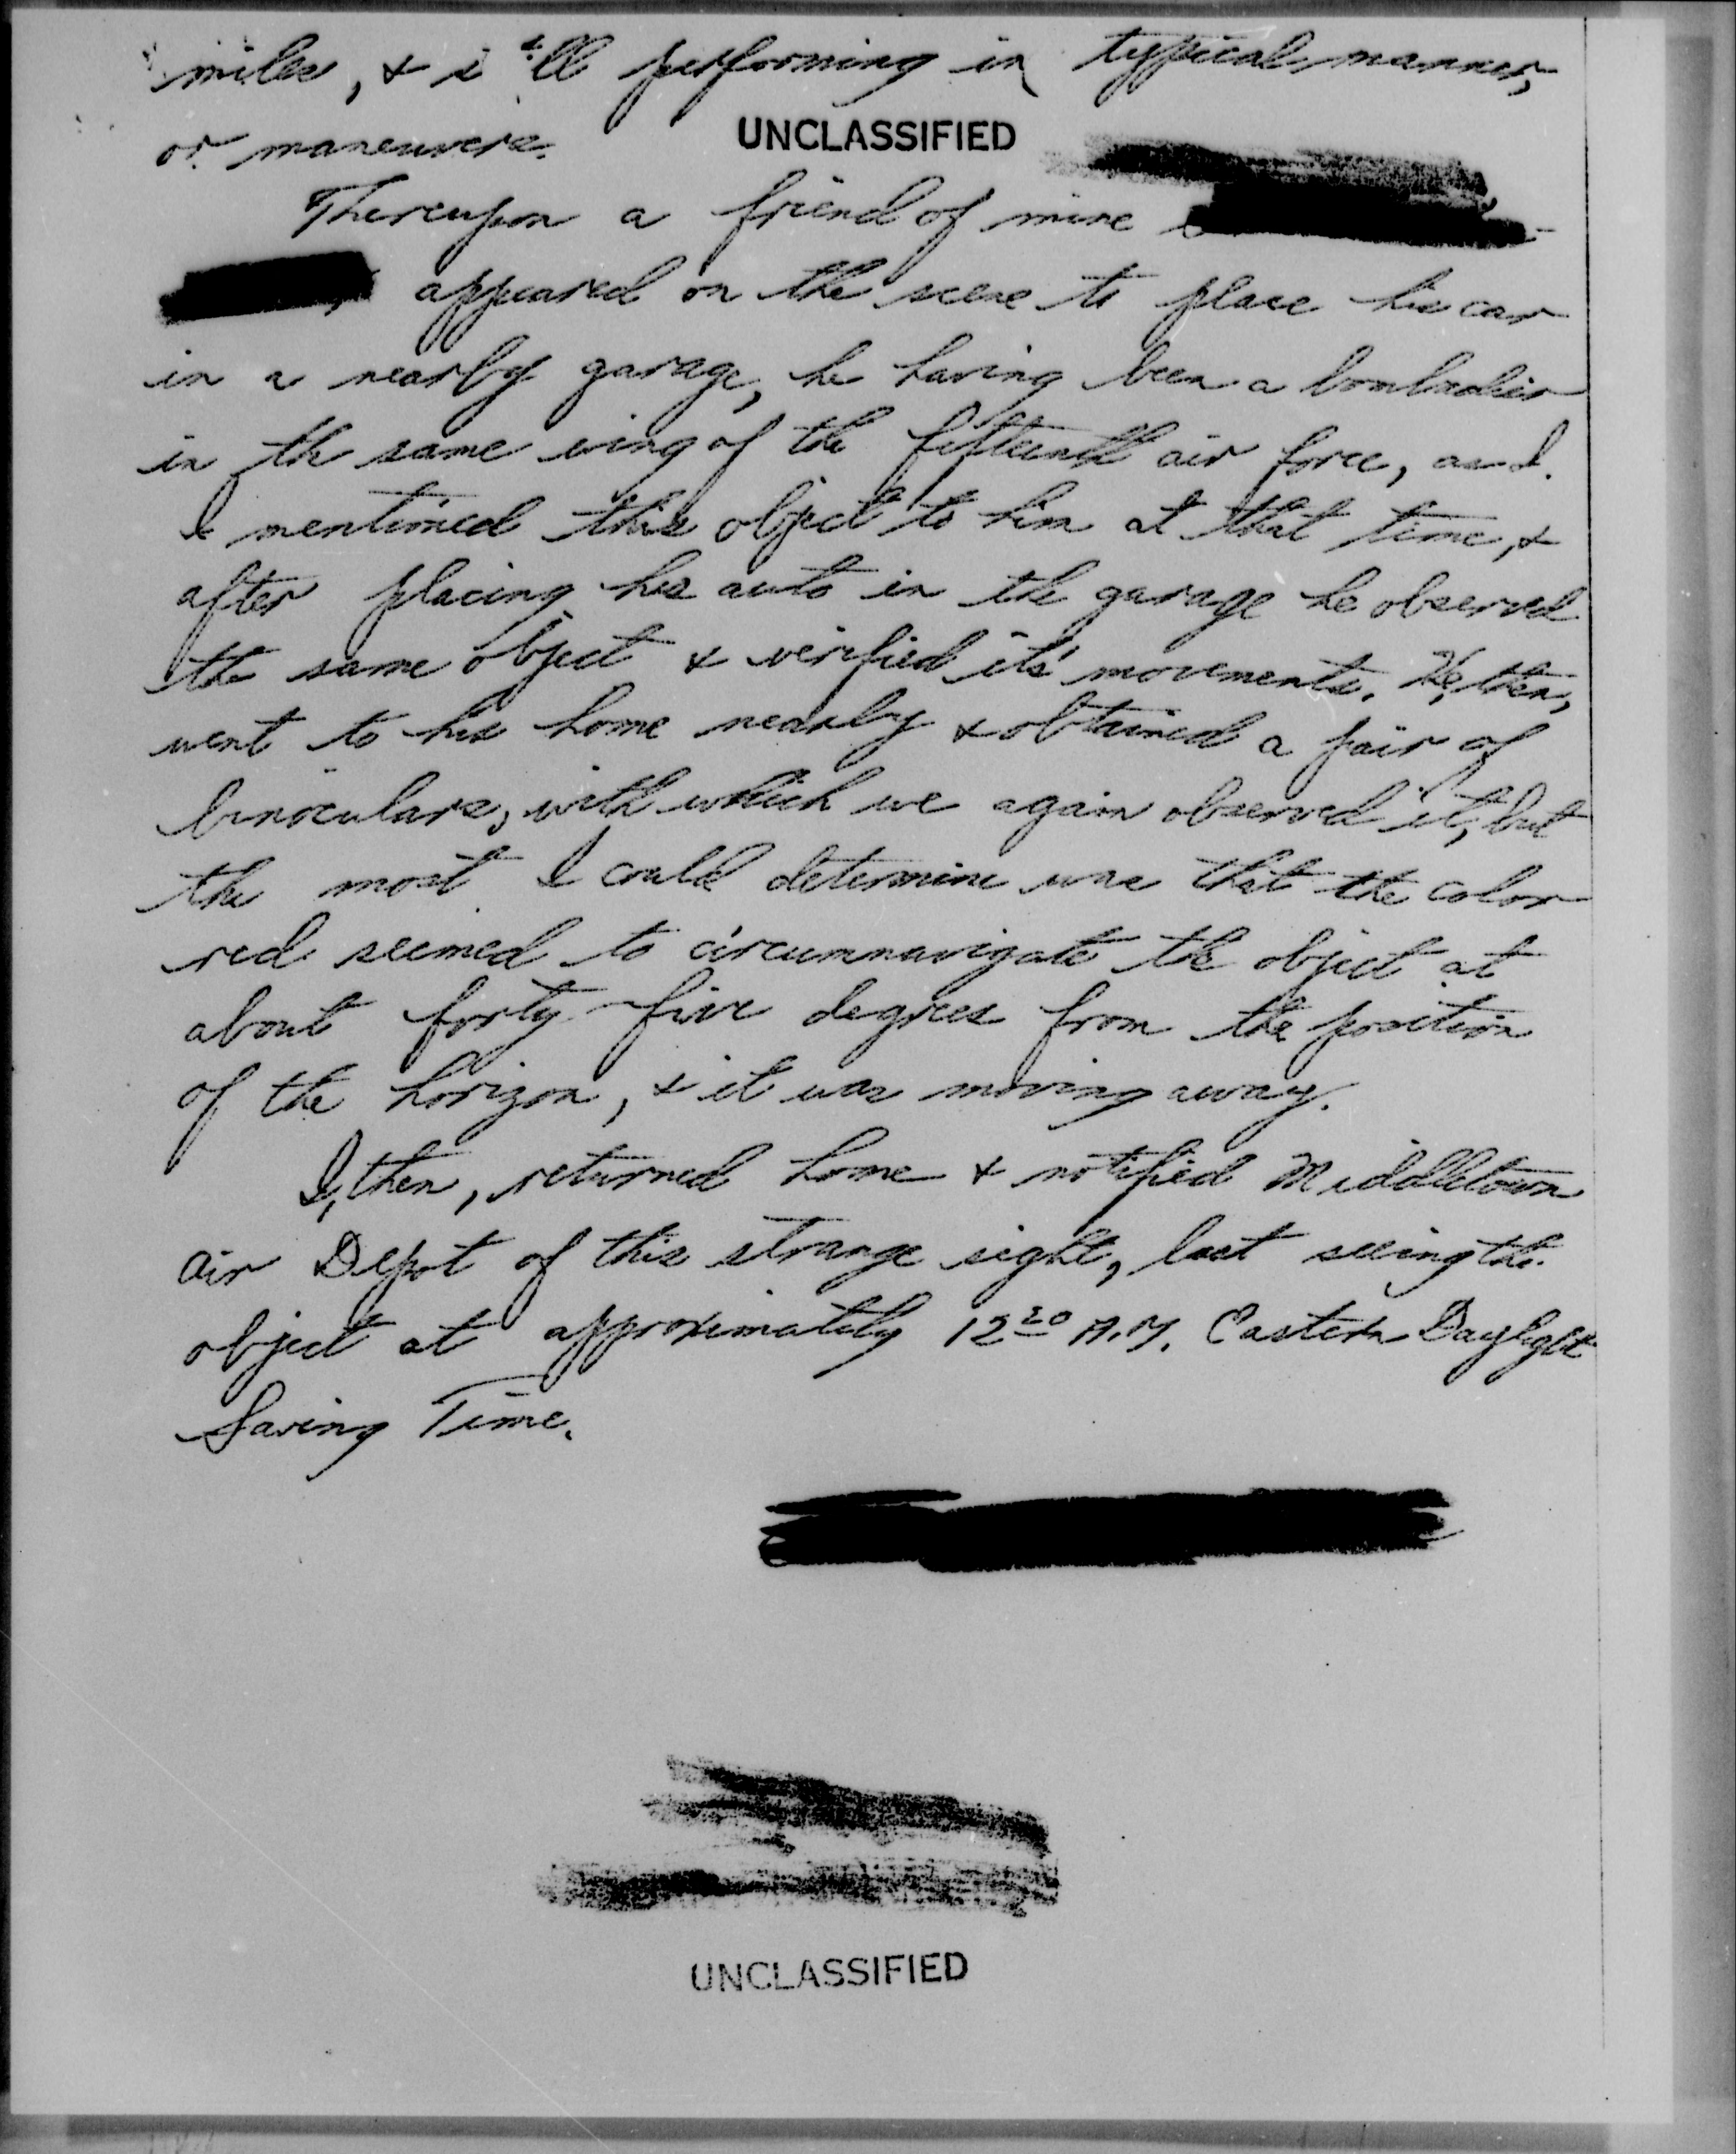 miles, & still performing in typical manner,
or maneuvers.
UNCLASSIFIED
Thereupon a friend of mine
appeared on the scene to place his car
in a nearby garage, he having been a bombadier
in the same wing of the fifteenth air force, as I.
I mentioned this object to him at that time, &
after placing his auto in the garage he observed
the same object & verified its' movements. He, then,
went to his home nearby & obtained a pair of
binoculars, with which we again observed it, but
the most I could determine was that the color
red seemed to circumnavigate the object at
about forty-five degrees from the position
of the horizon, & it was moving away.
I, then, returned home & notified Middletown
Air Depot of this strange sight, last seeing the
object at approximately 12 20 A.M. Eastern Daylight
Saving Time.
UNCLASSIFIED